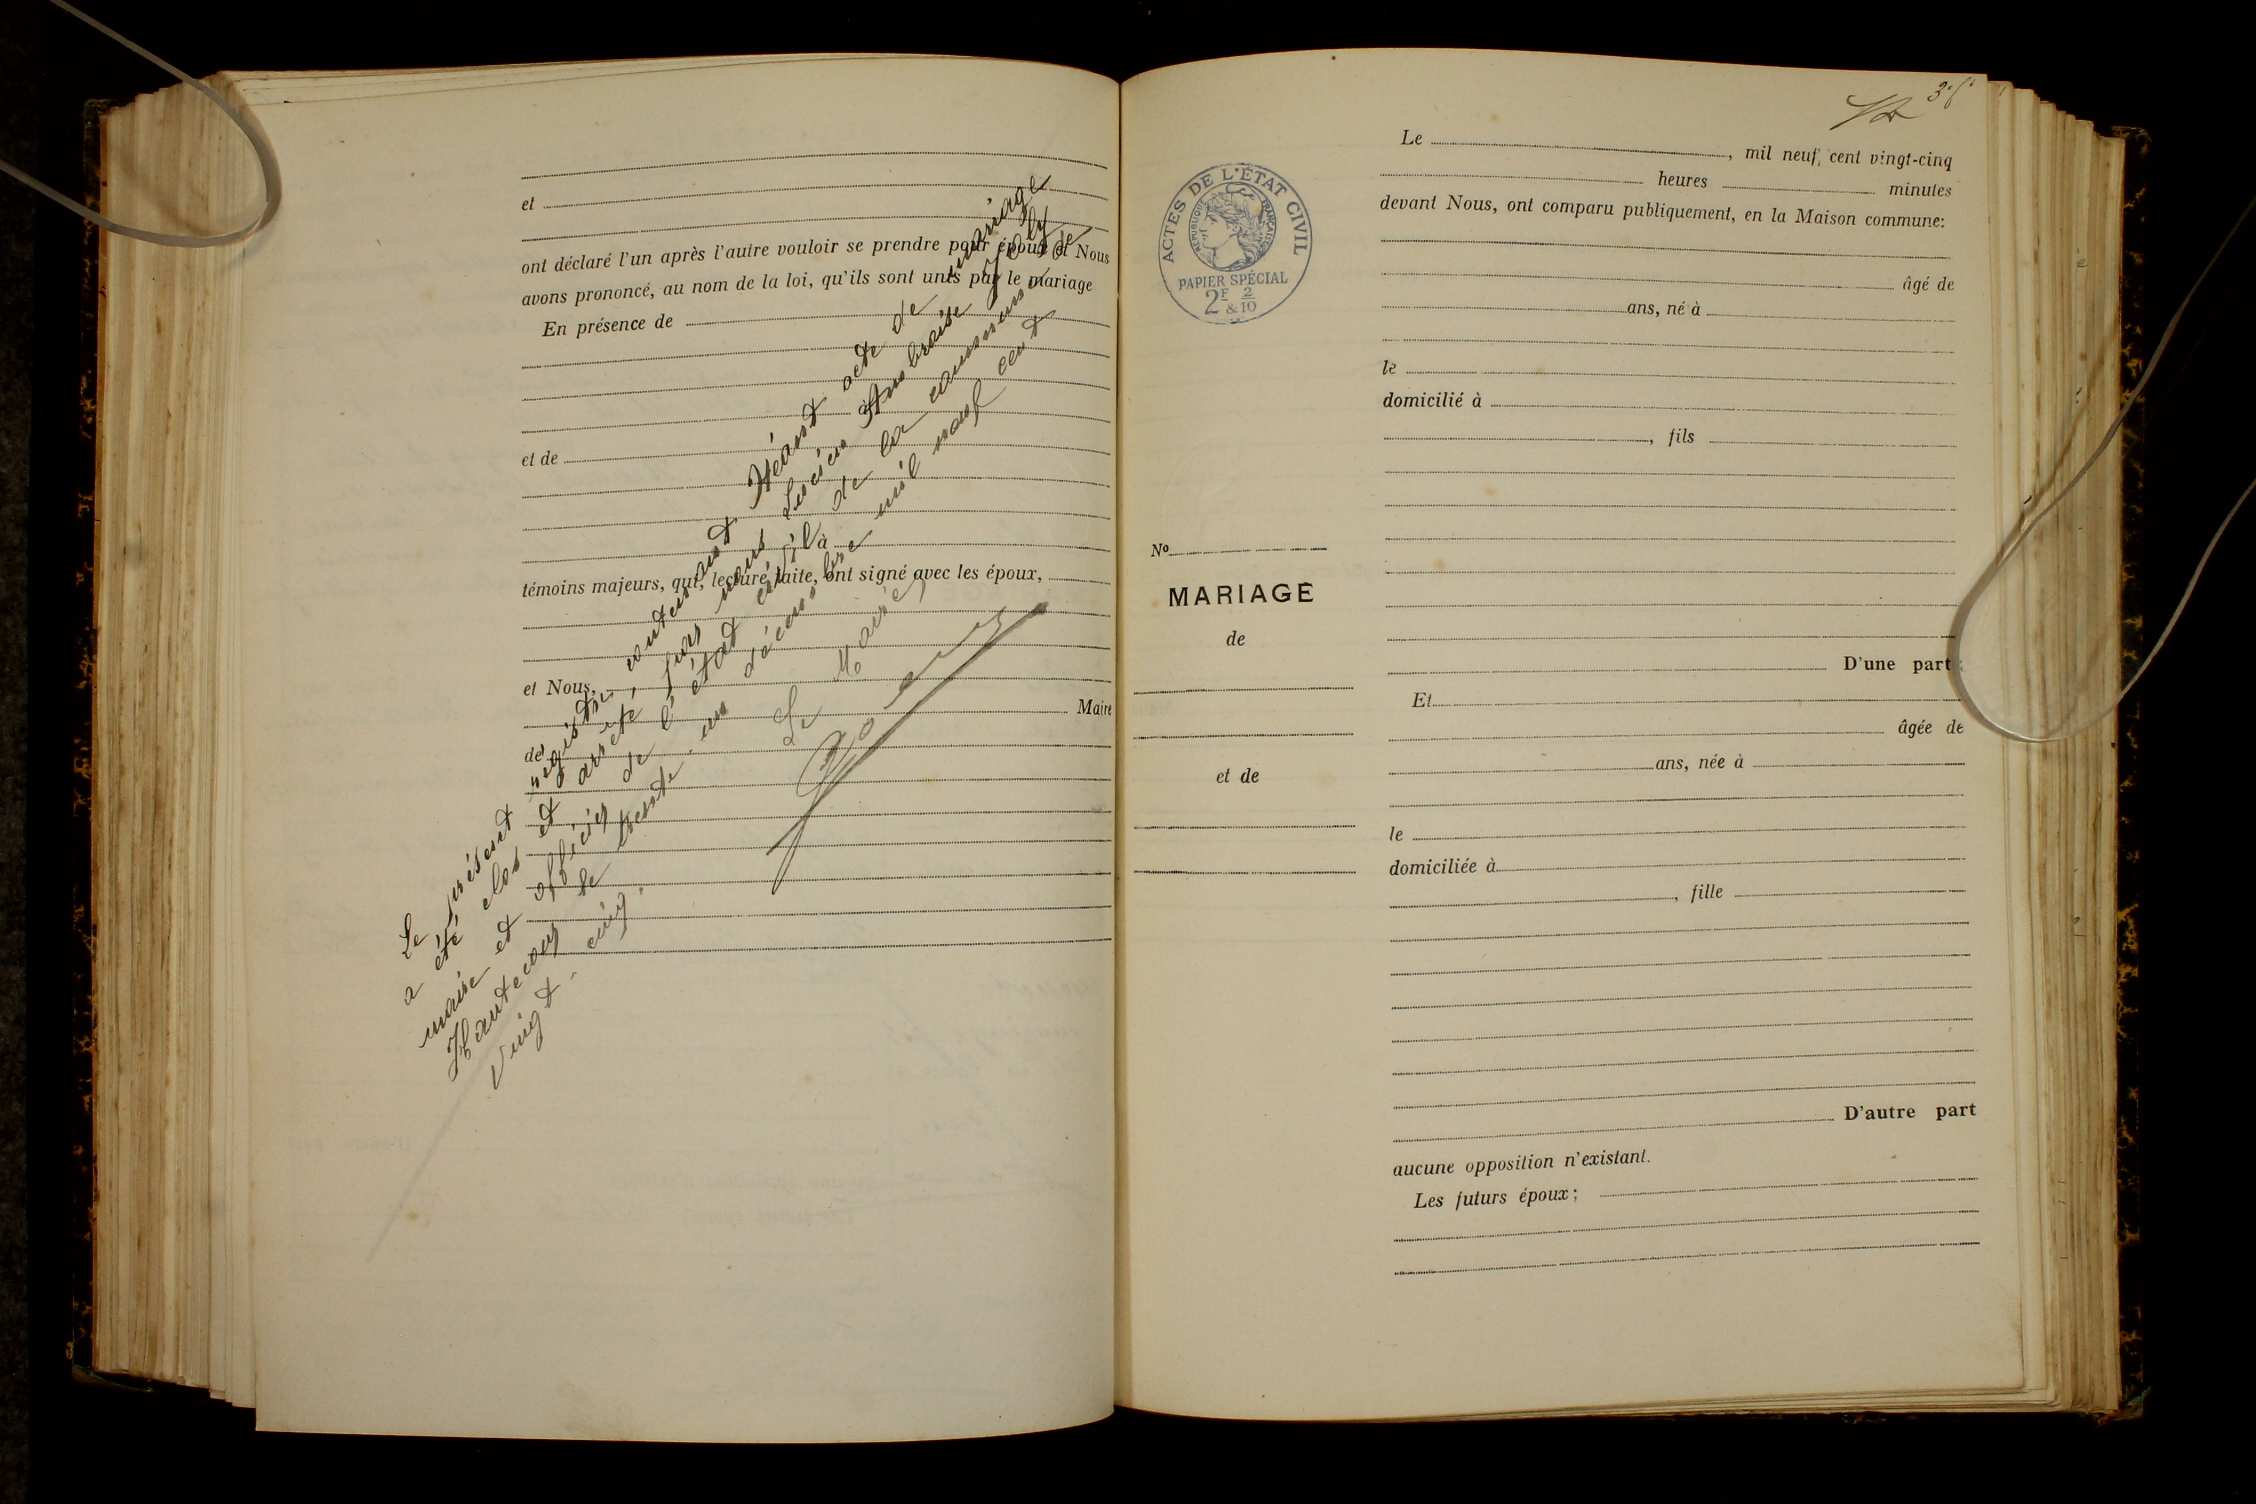 et
ont déclaré l'un après l'autre vouloir se prendre pour époux et Nous
avons prononcé, au nom de la loi, qu'ils sont unis par le mariage
En présence de
et de
à
témoins majeurs, qui, lecture faite, ont signé avec les époux,
et Nous,
Maire
de
Le présent registre contenant Néant acte de mariage
a été clos et arrêté par nous Lucien Ambroise Joly
maire et officier de l'état civil de la commune de
Hautecour le trente un décembre mil neuf cent
vingt-cinq.
Le Maire,
ACTES DE L'ÉTAT CIVIL
RÉPUBLIQUE FRANÇAISE
PAPIER SPÉCIAL
2F & 2/10
No
MARIAGE
de
et de
Le , mil neuf cent vingt-cinq
heures minutes
devant Nous, ont comparu publiquement, en la Maison commune:
âgé de
ans, né à
le
domicilié à
, fils
D'une part ;
Et
âgée de
ans, née à
le
domiciliée à
, fille
D'autre part
aucune opposition n'existant.
Les futurs époux ;